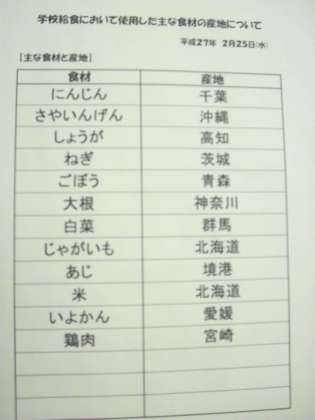 学校給食において使用した主な食材の産地について
平成27年 2月25日(水)
[主な食材と産地]
食材 産地
にんじん 千葉
さやいんげん 沖縄
しょうが 高知
ねぎ 茨城
ごぼう 青森
大根 神奈川
白菜 群馬
じゃがいも 北海道
あじ 境港
米 北海道
いよかん 愛媛
鶏肉 宮崎